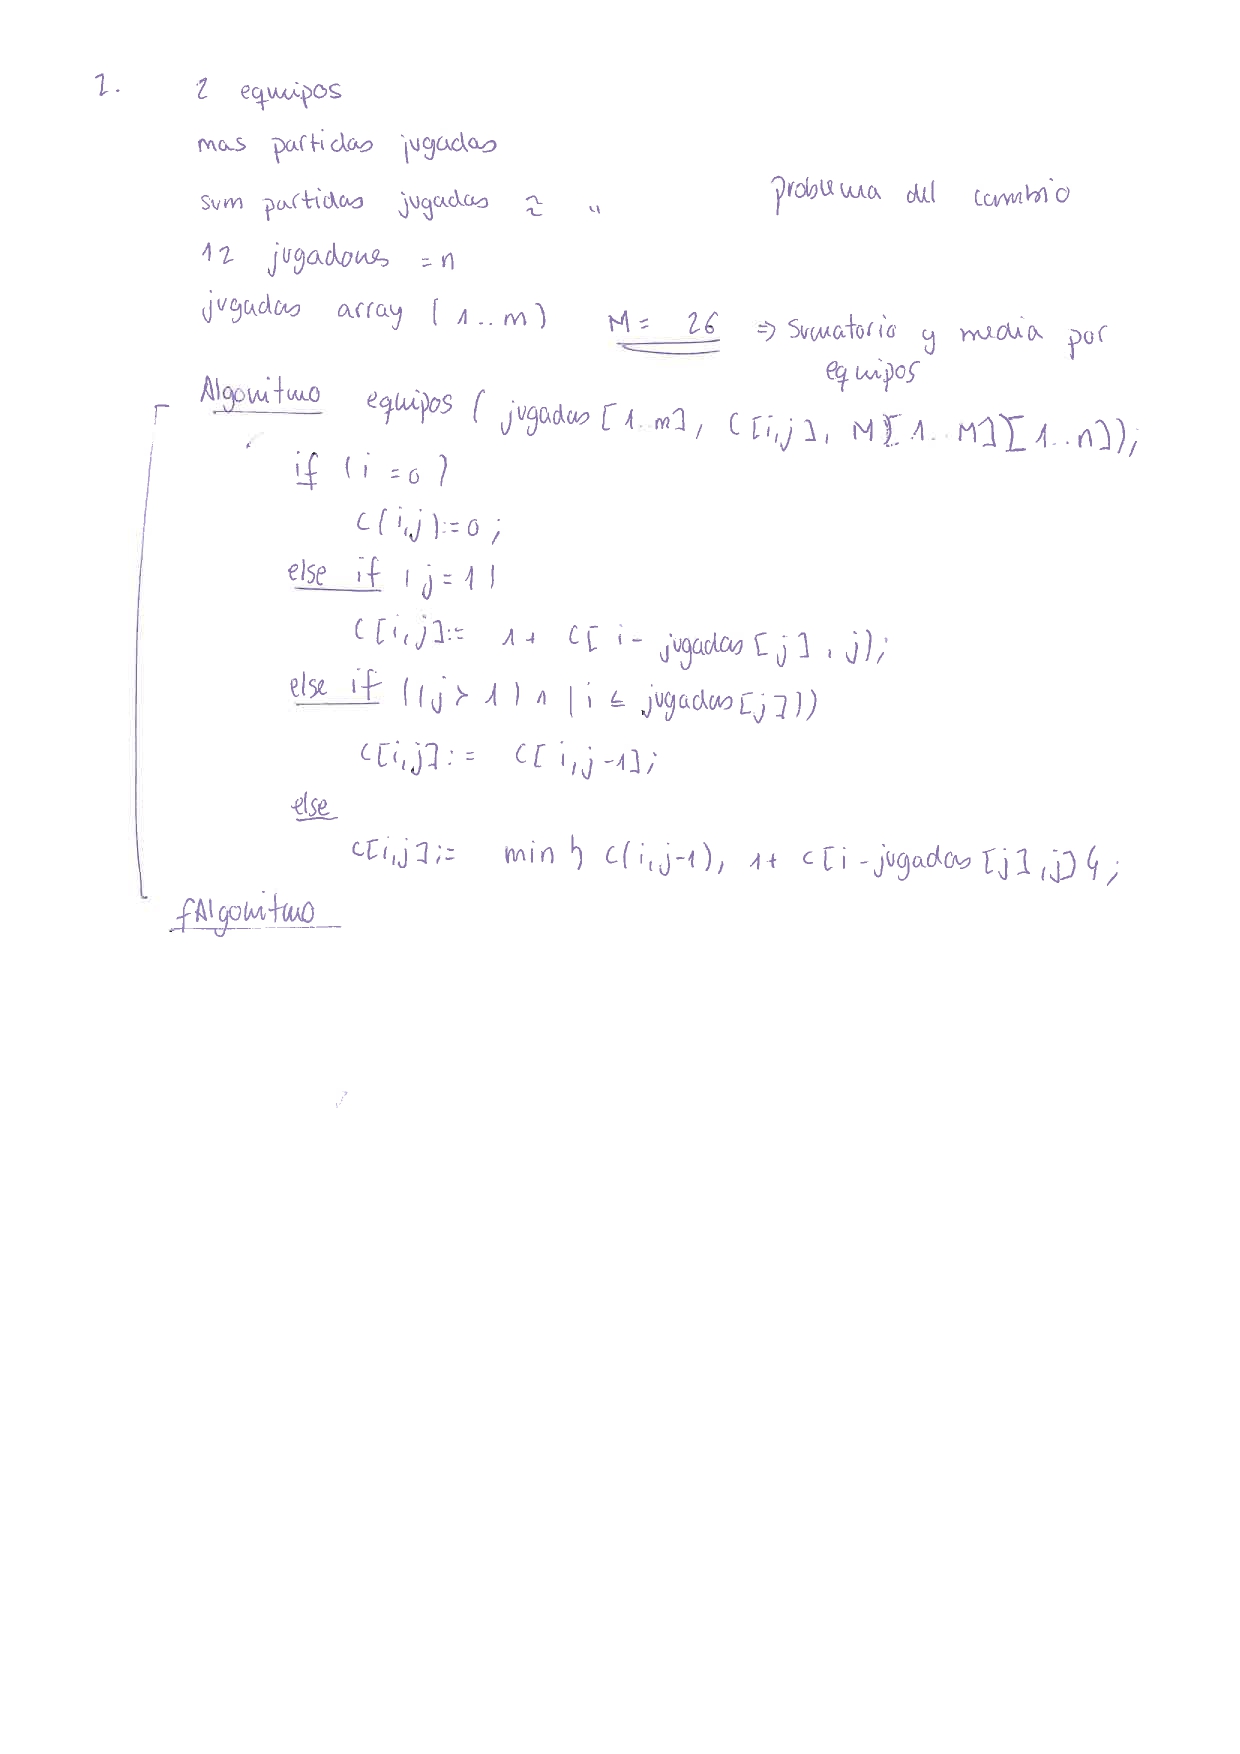 2. 2 equipos
mas partidas jugadas
sum partidas jugadas ≈ "
problema del cambio
12 jugadores = n
jugadas array (1..m) M = 26 => Sumatorio y media por
equipos
Algoritmo equipos ( jugadas [1..m], C[i,j], M[1..M][1..n]);
if (i = 0)
C(i,j):=0;
else if (j=1)
C[i,j]:= 1+ C[i- jugadas[j], j);
else if ((j > 1) ∧ (i ≤ jugadas[j]))
C[i,j]:= C[i,j-1];
else
C[i,j]:= min { C(i,j-1), 1+ C[i-jugadas[j],j]};
fAlgoritmo